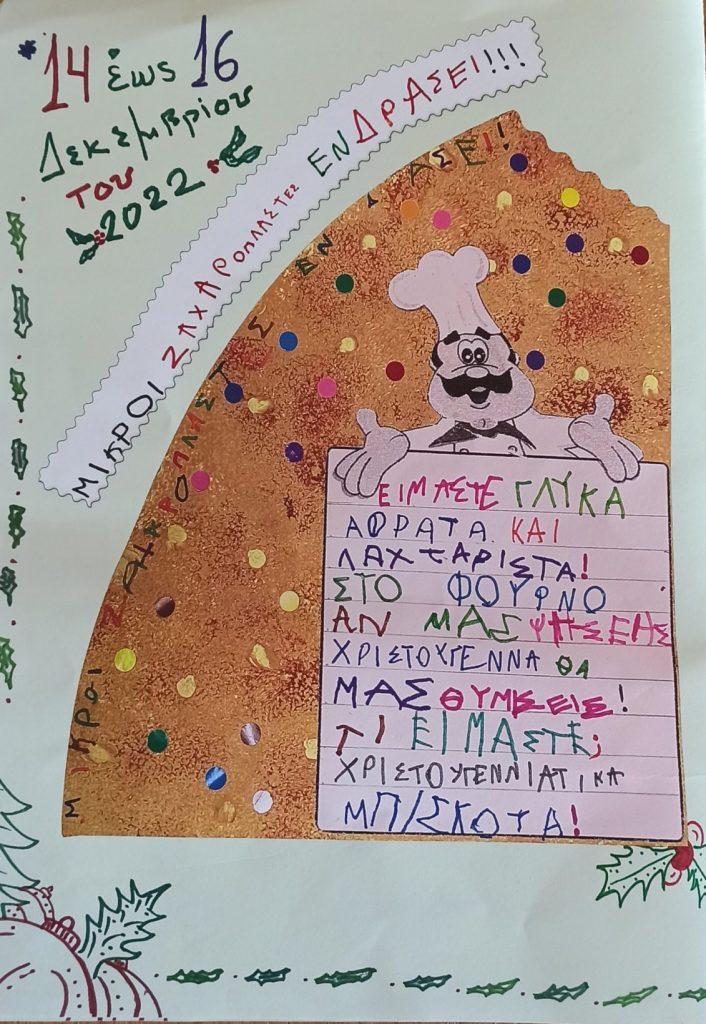 *14 έως 16
Δεκεμβρίου
του
2022
ΜΙΚΡΟΙ ΖΑΧΑΡΟΠΛΑΣΤΕΣ ΕΝ ΔΡΑΣΕΙ!!!
ΜΙΚΡΟΙ ΖΑΧΑΡΟΠΛΑΣΤΕΣ ΕΝ ΔΡΑΣΕΙ!
ΕΙΜΑΣΤΕ ΓΛΥΚΑ
ΑΦΡΑΤΑ ΚΑΙ
ΛΑΧΤΑΡΙΣΤΑ!
ΣΤΟ ΦΟΥΡΝΟ
ΑΝ ΜΑΣ ΨΗΣΕΙΣ
ΧΡΙΣΤΟΥΓΕΝΝΑ ΘΑ
ΜΑΣ ΘΥΜΙΣΕΙΣ!
ΤΙ ΕΙΜΑΣΤΕ;
ΧΡΙΣΤΟΥΓΕΝΝΙΑΤΙΚΑ
ΜΠΙΣΚΟΤΑ!